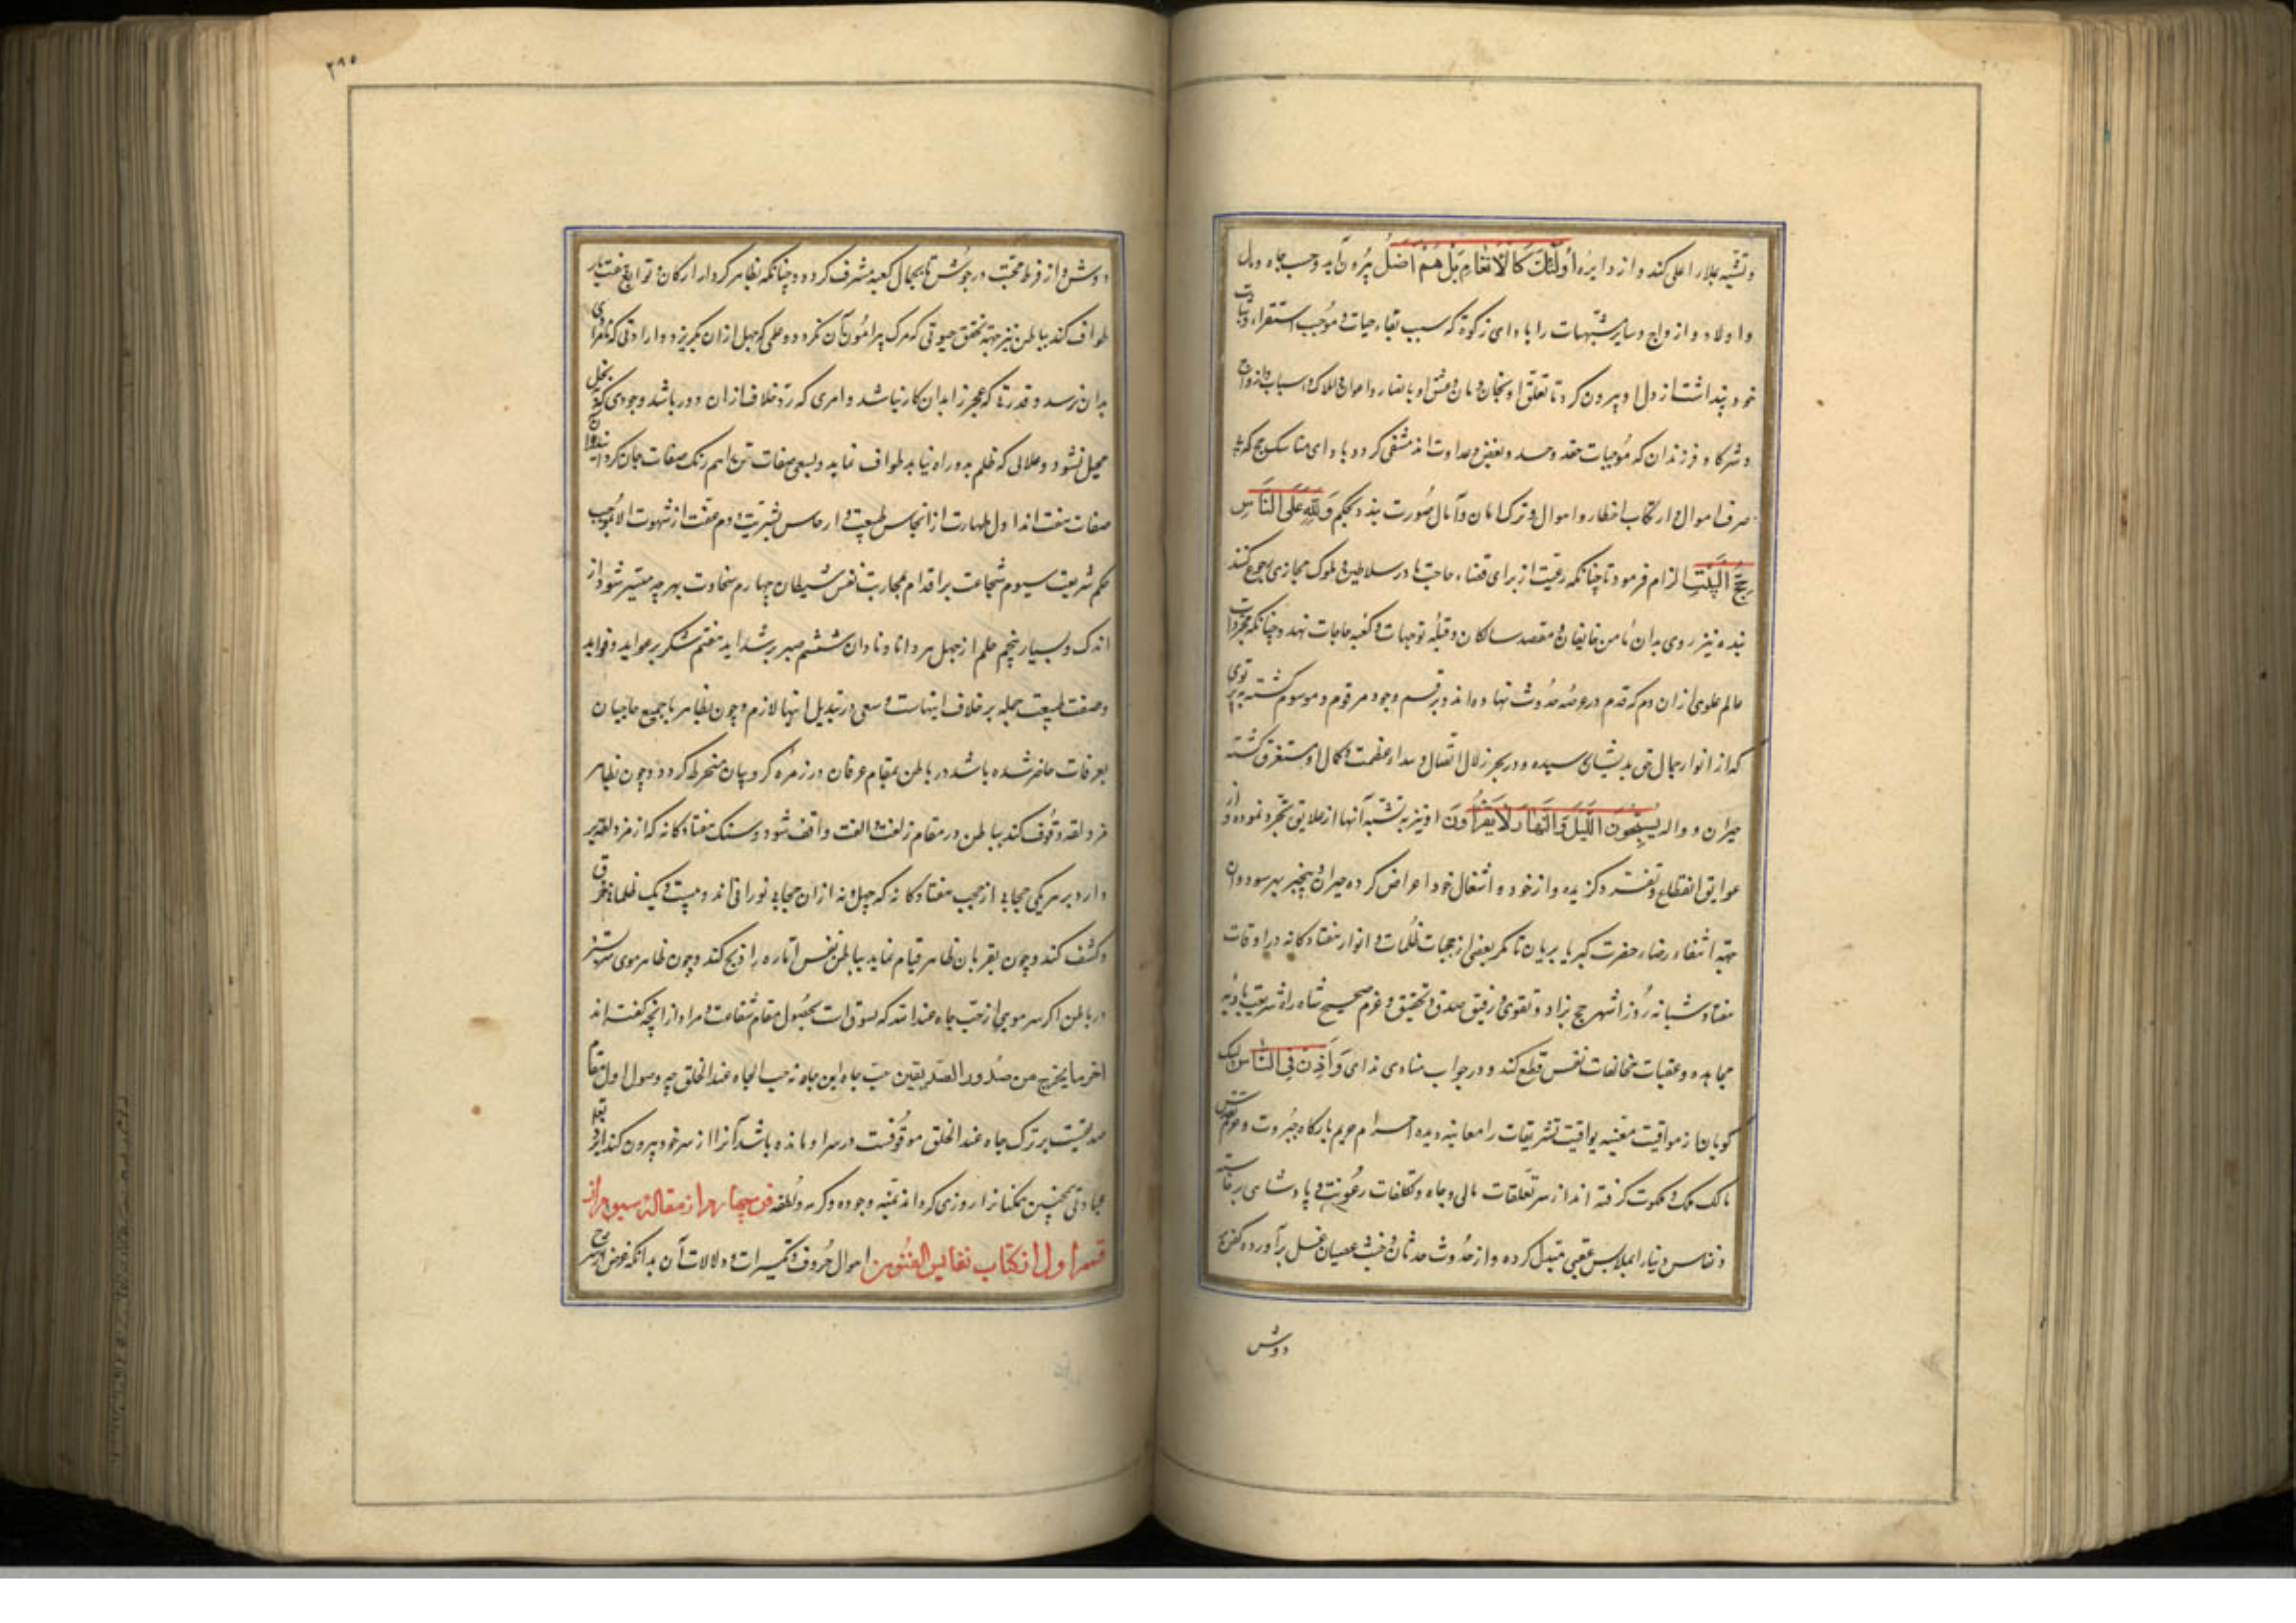 وتشبه بملاء اعلی کند و از دایره أُولَٰئِكَ كَالْأَنْعَامِ بَلْ هُمْ أَضَلُّ بیرون آید و حب جاه و مال
و اولاد و ازواج و سایر مشتهیات را با دای زکوة که سبب بقاء حیات و موجب استقرار
خود پنداشت از دل او بیرون کرد تا تعلق او بخان و مان و
و شرکا و فرزندان که موجبات حقد و حسد و بغض و عداوت اند منتفی کردد با دای مناسک حج که
صرف اموال و ارتکاب اخطار و اهوال و ترک امان و آمال صورت بندد بحکم وَلِلَّهِ عَلَى النَّاسِ
حِجُّ الْبَيْتِ الزام فرمود تا چنانکه رعیت از برای قضاء حاجتها در سلاطین و ملوک مجازی رجوع کنند
بنده نیز روی بدان مامن خایفان و مقصد سالکان و قبله توجهات و کعبه حاجات نهد و چنانکه مجردات
عالم علوی از آن دم که قدم در عرصه حدوث نهاده اند و برقسم وجود مرقوم و موسوم کشته
که از انوار جمال حق بدیشان رسیده و در بحر زلال اتصال و عظمت و کمال او مستغرق کشته
حیران و واله يُسَبِّحُونَ اللَّيْلَ وَالنَّهَارَ لَا يَفْتُرُونَ او نیز به تشبه آنها از علایق تجرد نموده و از
عوایق انقطاع و تفرد کزیده و از خود و اشغال خود اعراض کرده حیران و بیخبر بهر سو دوان
جهة ابتغاء رضاء حضرت کبریا پویان تا مکر بعضی از حجبات ظلمات و انوار هفتادکانه در اوقات
هفتاد شبانه روز اشهر حج بزاد تقوی و رفیق صدق و تحقیق و عزم صحیح شاه راه شریعت
مجاهده و عقبات مخالفات نفس قطع کند و در جواب منادی ندای وَأَذِّنْ فِي النَّاسِ لبیک
کویان از مواقیت معینه یواقیت تشریفات را معاینه دیده احرام حریم بارکاه جبروت و
مالک ملک و ملکوت کرفته از سر تعلقات مالی و جاه و تکلفات رعونت و پادشاهی برخاسته
و لباس دنیا را بملابس عقبی مبدل کرده و از حدوث حدثان و خبث عصیان غسل برآورده کفن بر
دوش
۲۹۵
دوش و از فرط محبت در جوش تا بجمال کعبه مشرف کردد و چنانکه بظاهر کرد ار ارکان و توابع
طواف کند بباطن نیز جهة تحقق حیوتی که مرک پیرامون آن نکردد و علمی که جهل از آن بکریزد و ارادتی که
بدان نرسد و قدرتی که عجز را بدان کار نباشد و امری که رد خلاف از آن دور باشد و جودی که بخل
محیل نشود و عدلی که ظلم بدو راه نیابد طواف نماید و بسعی صفات تن را هم رنک صفات جان کرداند و آن
صفات هفت اند اول طهارت از انجاس طبیعت و ارجاس بشریت دوم عفت از شهوت الا بموجب
حکم شریعت سیوم شجاعت بر اقدام بمحاربت نفس و شیطان چهارم سخاوت بهر چه میسر شود از
اندک و بسیار پنجم حلم از جهل هر دانا و نادان ششم صبر بر شداید هفتم شکر بر عواید و فواید
و صفت طبیعت جمله بر خلاف اینهاست و سعی در تبدیل اینها لازم و چون بظاهر با جمیع حاجیان
بعرفات حاضر شده باشد در باطن بمقام عرفان در زمره کروبیان منخرط کردد و چون بظاهر
مزدلفه وقوف کند بباطن در مقام زلفت و الفت واقف شود و سنک هفتادکانه که از مزدلفه بر
دارد بر هر یکی حجابی از حجب هفتادکانه که چهل و نه از آن حجابی نورانی اند و بیست و یک ظلمانی خرق
و کشف کند و چون بقربان ظاهر قیام نماید بباطن نفس اماره را ذبح کند و چون ظاهر موی سر
در باطن اکر سر مویی از حب جاه عند الله که مسوق است بحصول مقام شفاعت و مراد از آنچه کفته اند
آخر ما یخرج من صدور الصدیقین حب جاه این جاه نه حب الجاه عند الخلق چه وصول اول مقام
صدیقیت بر ترک جاه عند الخلق موقوفست در سر او مانده باشد آنرا از سر خود بیرون کند
عبادتی چنین همکنانرا روزی کرداناد بمنه وجوده وکرمه ولطفه فن چهارم از مقالۀ سیوم از
قسم اول از کتاب نفایس الفنون در احوال حروف و تکسیرات و دلالات آن بدانکه غرض